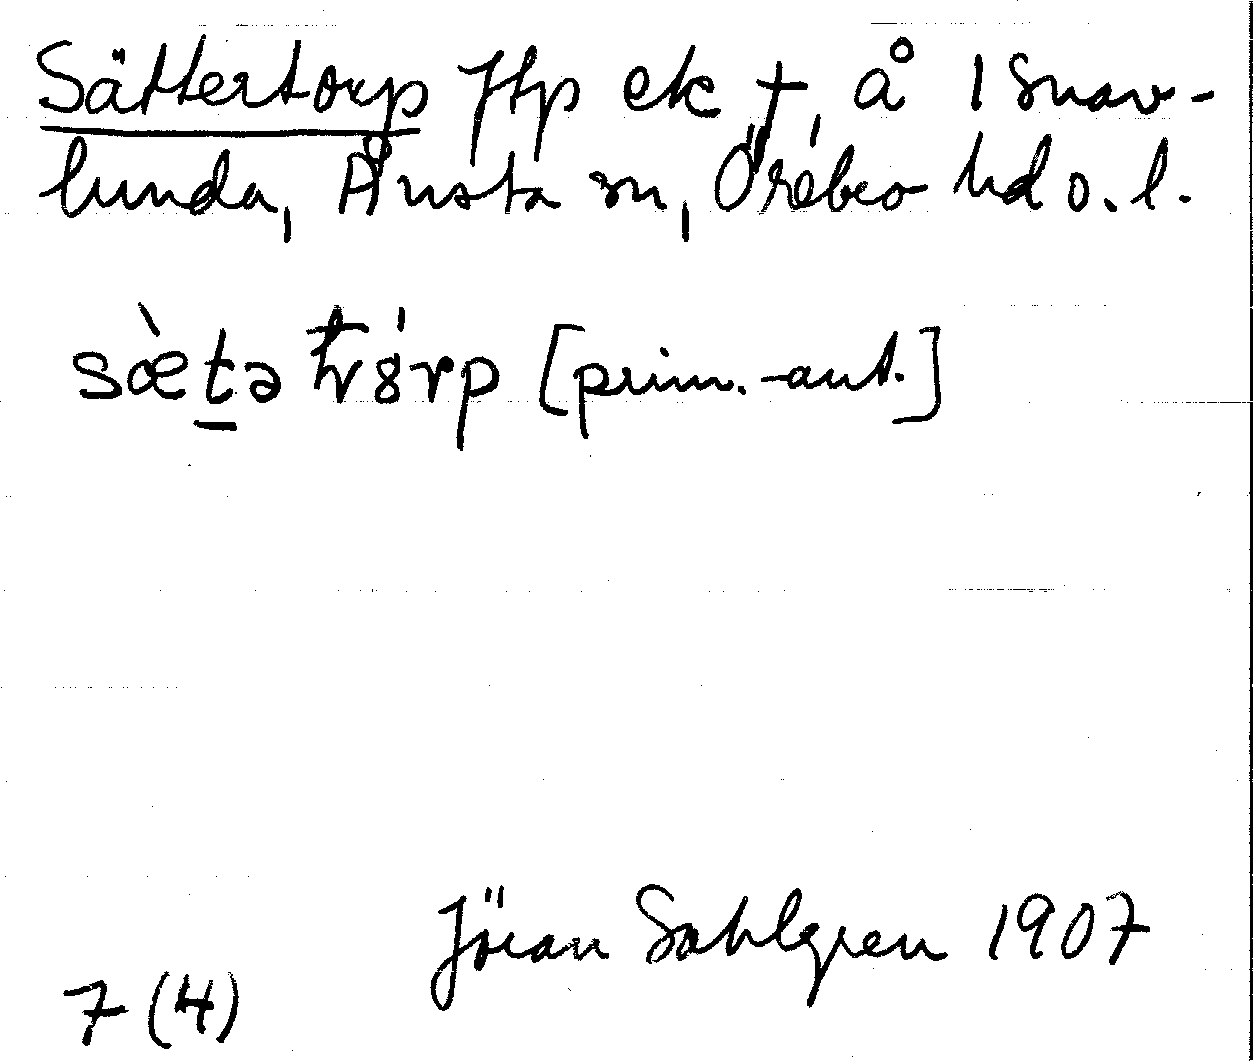 Sättertorp ftp ek †, å 1 Snav-
lunda, Ånsta sn, Örebro hd o. l.
sæ̀ṯə tŕ8rp [prim.-aut.]
Jöran Sahlgren 1907
7 (4)